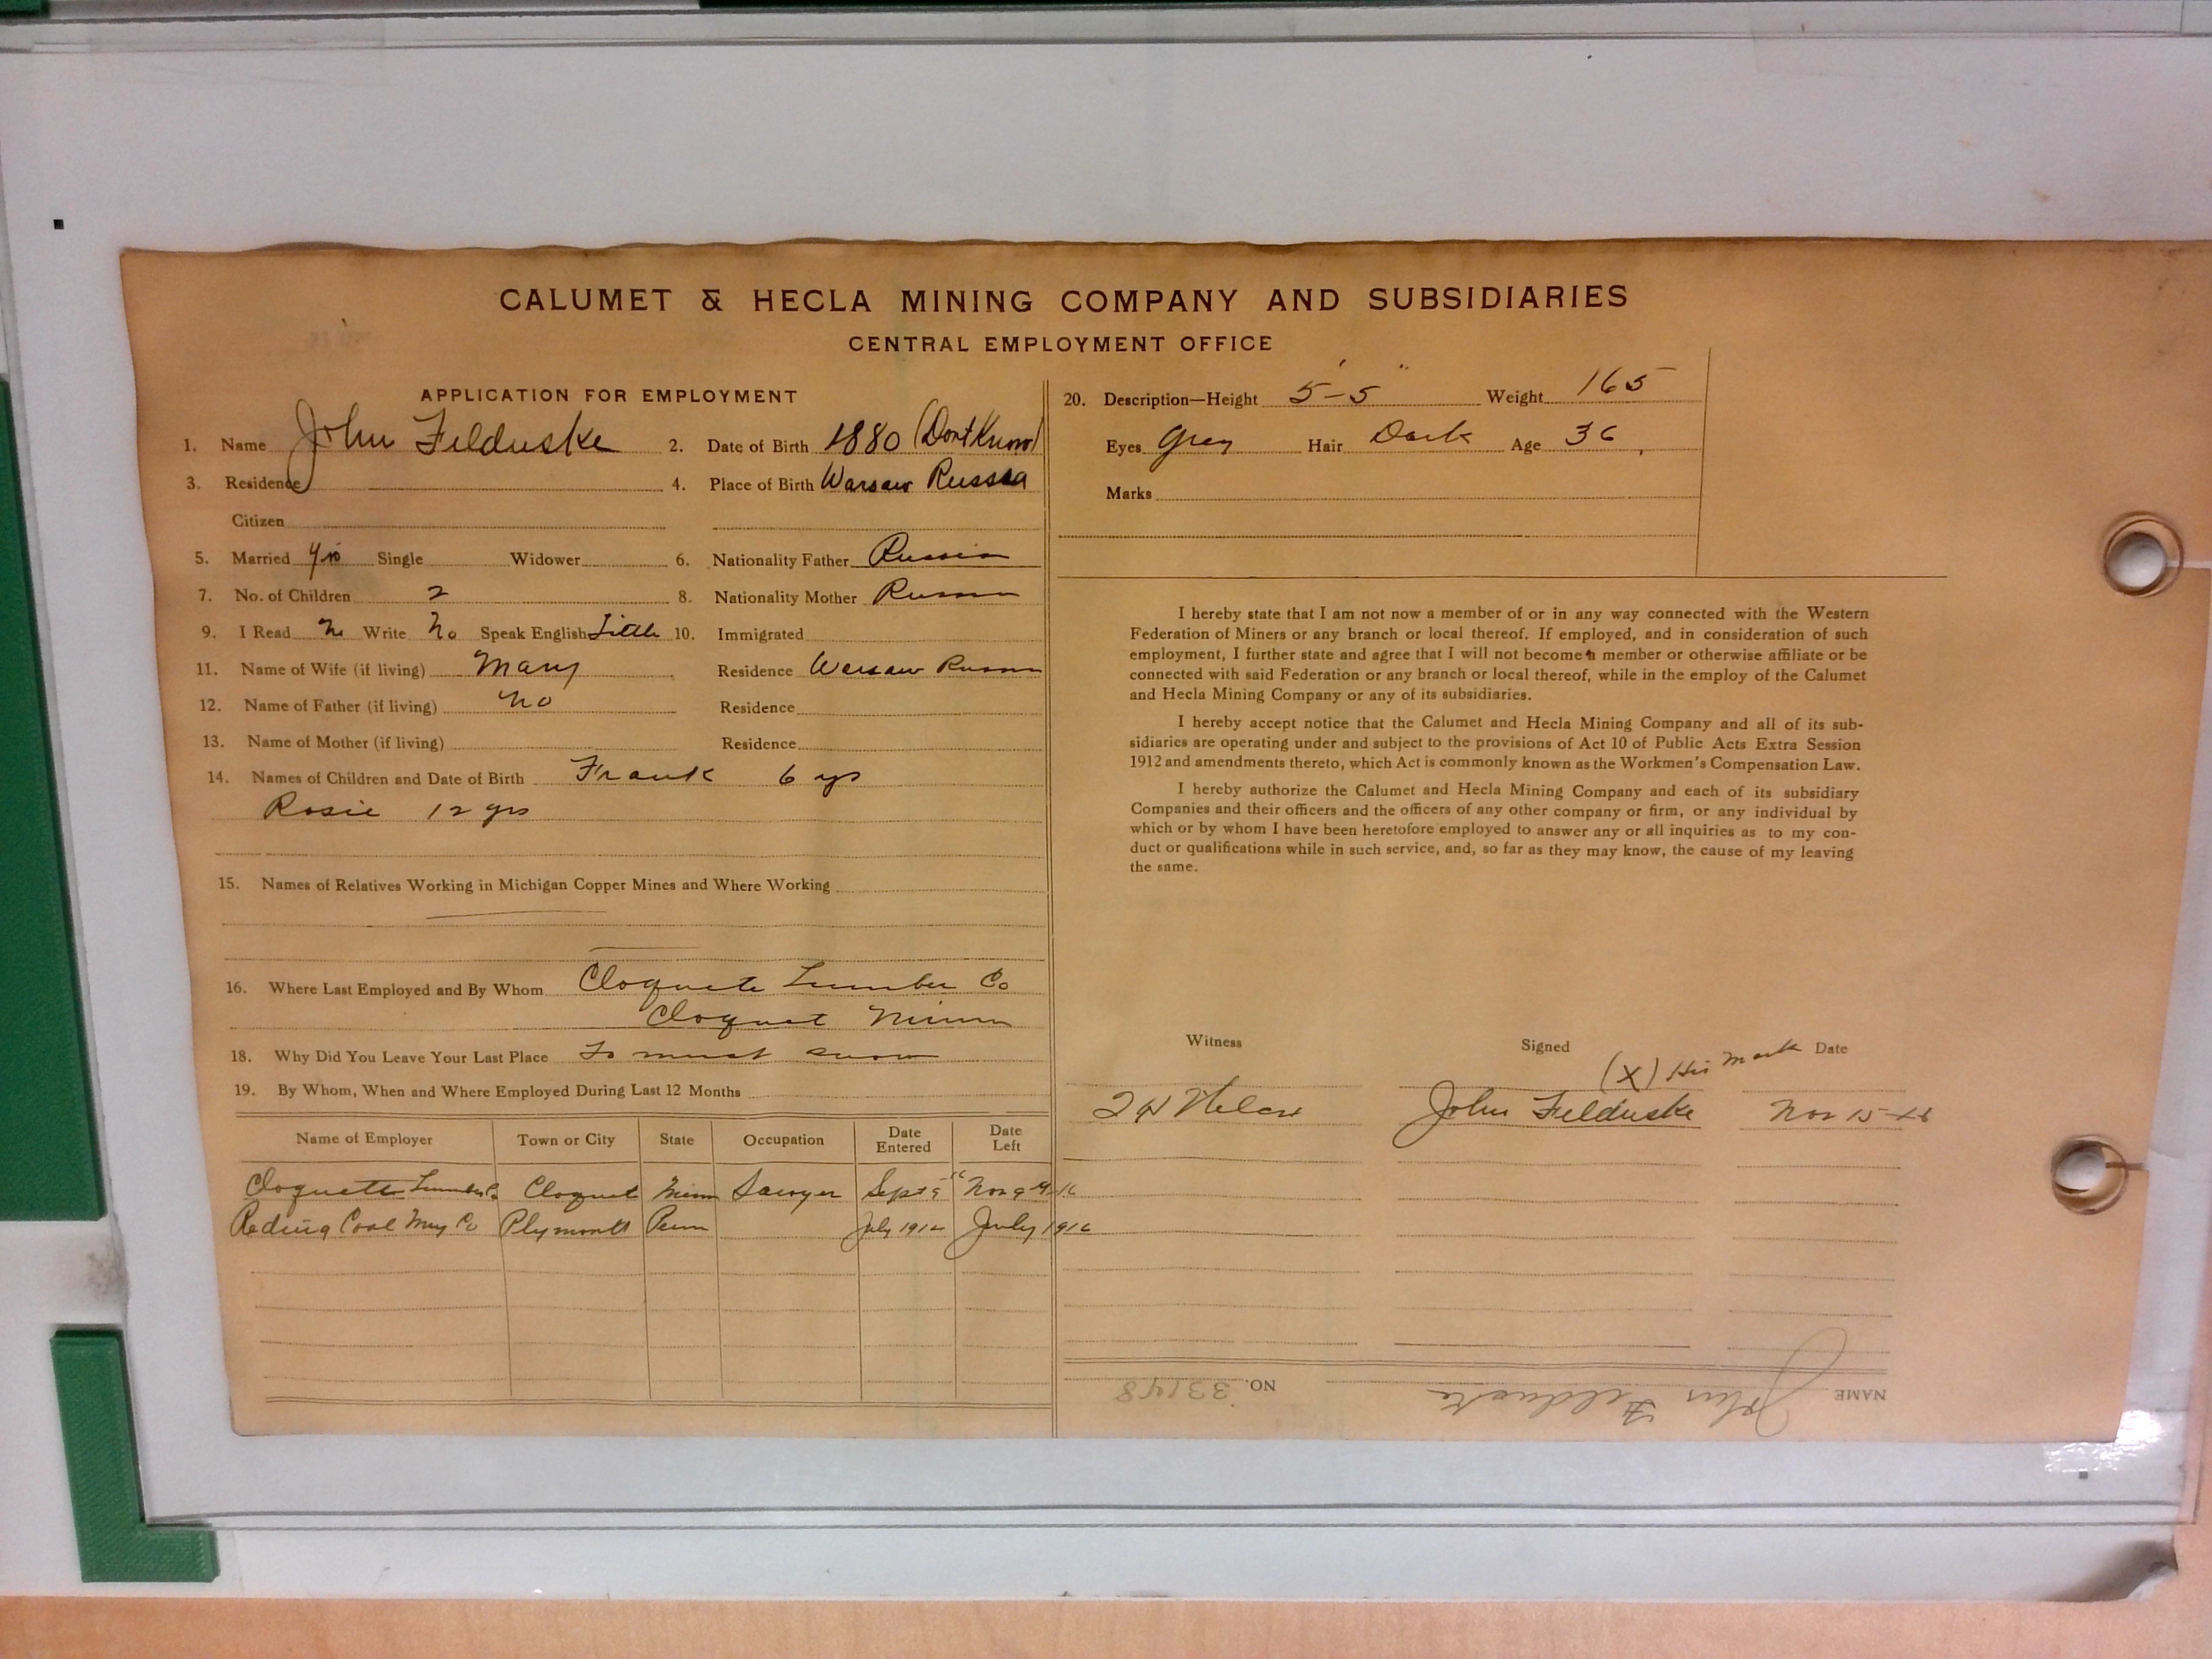 CALUMET & HECLA MINING COMPANY AND SUBSIDIARIES
CENTRAL EMPLOYMENT OFFICE
APPLICATION FOR EMPLOYMENT
1. Name John Felduske 2. Date of Birth 1880 (Dont Know)
3. Residence 4. Place of Birth Warsaw Russia
Citizen
5. Married yes Single Widower 6. Nationality Father Russian
7. No. of Children 2 8. Nationality Mother Russian
9. I Read No Write No Speak English Little 10. Immigrated
11. Name of Wife (if living) Mary Residence Warsaw Russia
12. Name of Father (if living) no Residence
13. Name of Mother (if living) Residence
14. Names of Children and Date of Birth Frank 6 yrs
Rosie 12 yrs
15. Names of Relatives Working in Michigan Copper Mines and Where Working
16. Where Last Employed and By Whom Cloquete Lumber Co
Cloquet Minn
18. Why Did You Leave Your Last Place To much snow
19. By Whom, When and Where Employed During Last 12 Months
Name of Employer Town or City State Occupation Date Entered Date Left
Cloquette Lumber Co Cloquet Minn Sawyer Sept 5 Nov 9 16
Reding Coal Mng Co Plymouth Penn July 1912 July 1916
20. Description—Height 5'-5" Weight 165
Eyes Grey Hair Dark Age 36
Marks
I hereby state that I am not now a member of or in any way connected with the Western
Federation of Miners or any branch or local thereof. If employed, and in consideration of such
employment, I further state and agree that I will not become a member or otherwise affiliate or be
connected with said Federation or any branch or local thereof, while in the employ of the Calumet
and Hecla Mining Company or any of its subsidiaries.
I hereby accept notice that the Calumet and Hecla Mining Company and all of its sub-
sidiaries are operating under and subject to the provisions of Act 10 of Public Acts Extra Session
1912 and amendments thereto, which Act is commonly known as the Workmen's Compensation Law.
I hereby authorize the Calumet and Hecla Mining Company and each of its subsidiary
Companies and their officers and the officers of any other company or firm, or any individual by
which or by whom I have been heretofore employed to answer any or all inquiries as to my con-
duct or qualifications while in such service, and, so far as they may know, the cause of my leaving
the same.
Witness Signed (X) His Mark Date
John Felduske Nov 15-16
NAME John Felduske NO. 33148